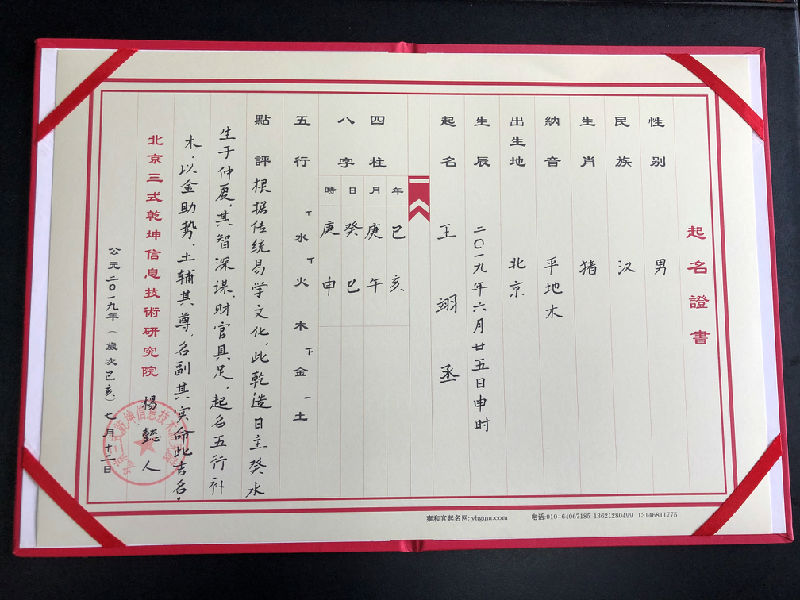 起名證書
性别 男
民族 汉
生肖 猪
納音 平地木
出生地 北京
生辰 二〇一九年六月廿五日申时
起名 王翊丞
四柱 年 月 日 時
八字 己亥 庚午 癸巳 庚申
五行 水 火 木 金 土
點評 根据传统易学文化，此乾造日主癸水
生于仲夏，其智深谋，财官具足，起名五行补
木，以金助势，土辅其尊，名副其实命此吉名。
北京三式乾坤信息技術研究院 楊懿人
公元二〇一九年（歲次己亥）七月十一日
雍和宫起名网:
电话:010-64067195